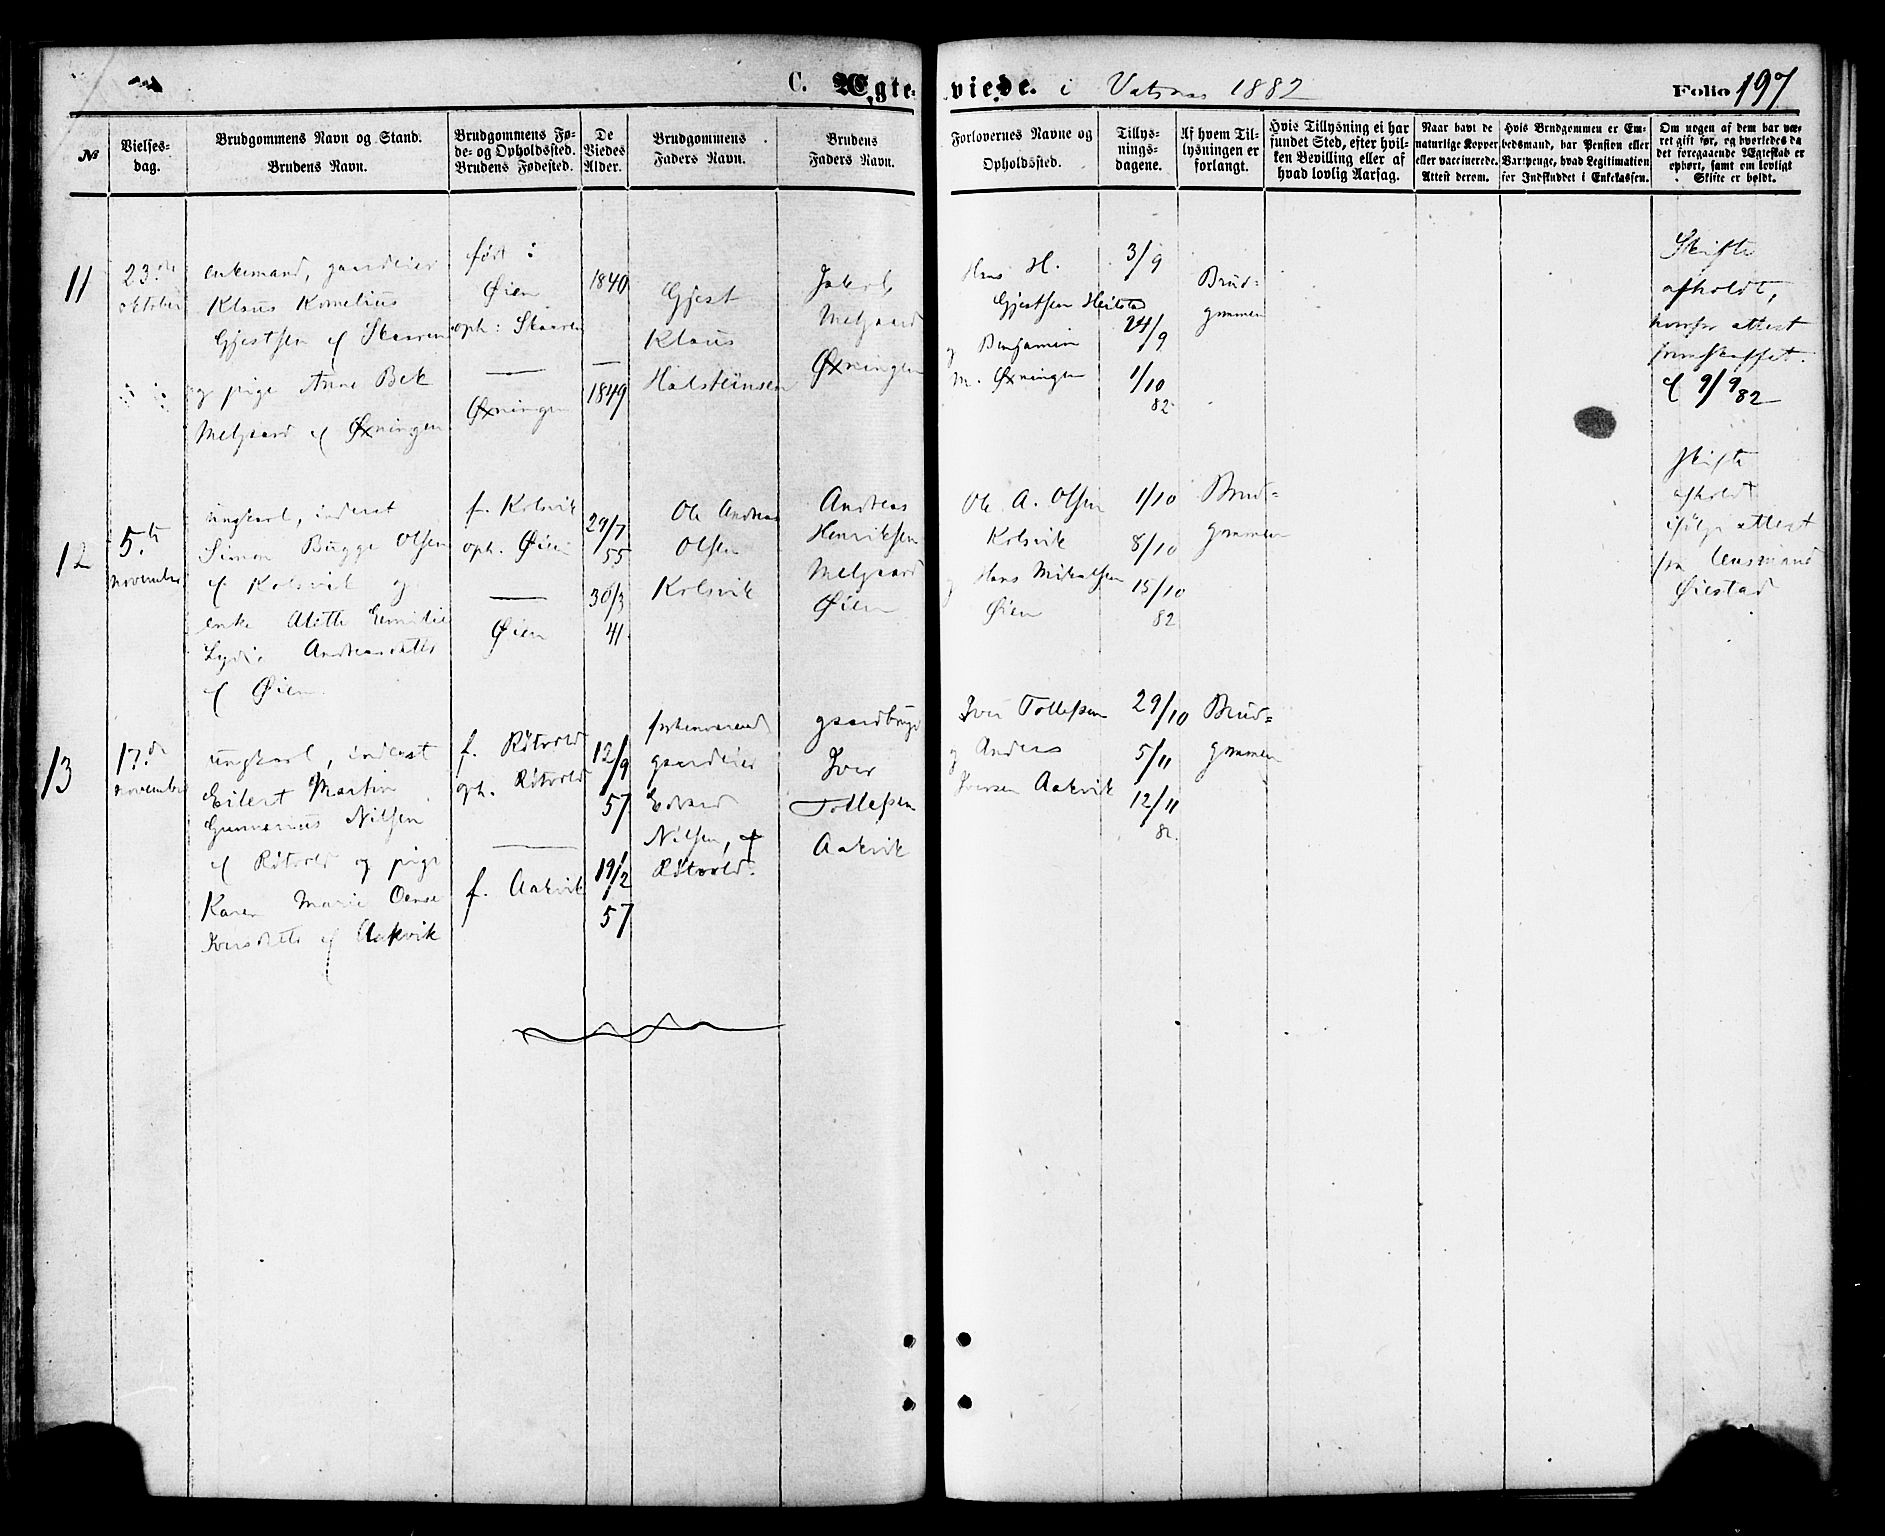 C. Ægteviede. i Vatnes 1882
Folio 197
№
Vielses-
dag.
Brudgommens Navn og Stand.
Brudens Navn.
Brudgommens Fø-
de- og Opholdssted.
Brudens Fødested.
De
Viedes
Alder.
Brudgommens
Faders Navn.
Brudens
Faders Navn.
Forlovernes Navne og
Opholdssted.
Tillys-
nings-
dagene.
Af hvem Til-
lysningen er
forlangt.
Hvis Tillysning ei har
fundet Sted, efter hvil-
ken Bevilling eller af
hvad lovlig Aarsag.
Naar havt de
naturlige Kopper
eller vaccinerede.
Attest derom.
Hvis Brudgommen er Em-
bedsmand, har Pension eller
Vartpenge, hvad Legitimation
for Indskuddet i Enkekassen.
Om nogen af dem har væ-
ret gift før, og hvorledes da
det foregaaende Ægteskab er
ophørt, samt om lovligt
Skifte er holdt.
11
23.de
oktober
enkemand, gaardeier
Klaus Kornelius
Gjestsen af Skaaren
og pige Anne Bek
Melgaard af Øxningen
født :
Øien
oph: Skaaren
Øxningen
1840
1849
Gjest
Klaus
Halsteinsen
Jakob
Melgaard
Øxningen
Hans H.
Gjestsen Heilstad
og Benjamin
M. Øxningen
3/9
24/9
1/10
82.
Brud-
gommen
Skifte
afholdt,
hvorfor attest
fremskaffet.
af 9/9 82
12
5.te
november
ungkarl, inderst
Simon Bugge Olsen
af Kolsvik og
enke Alette Emilie
Lydi. Andreasdatter
af Øien.
f. Kolsvik
oph. Øien
Øien
29/7
55
30/3
41.
Ole Andreas
Olsen
Kolsvik
Andreas
Henriksen
Melgaard
Øien
Ole A. Olsen
Kolsvik
og Hans Mikalsen
Øien
1/10
8/10
15/10
82
Brud-
gommen
skifte
afholdt
ifølge attest
fra lensmand
Øiestad
13
17.de
november
ungkarl, inderst
Eilert Martin
Gunnerius Nilsen
af Råtvold og pige
Karen Marie
Iversdatter af Aakvik
f. Råtvold
oph. Råtvold
f. Aakvik
12/9
57
19/2
57
forhenværende
gaardeier
Edvard
Nilsen, af
Råtvold.
gaardbruger
Iver
Tollefsen
Aakvik
Iver Tollefsen
og Anders
Iversen Aakvik
29/10
5/11
12/11
82.
Brud-
gommen